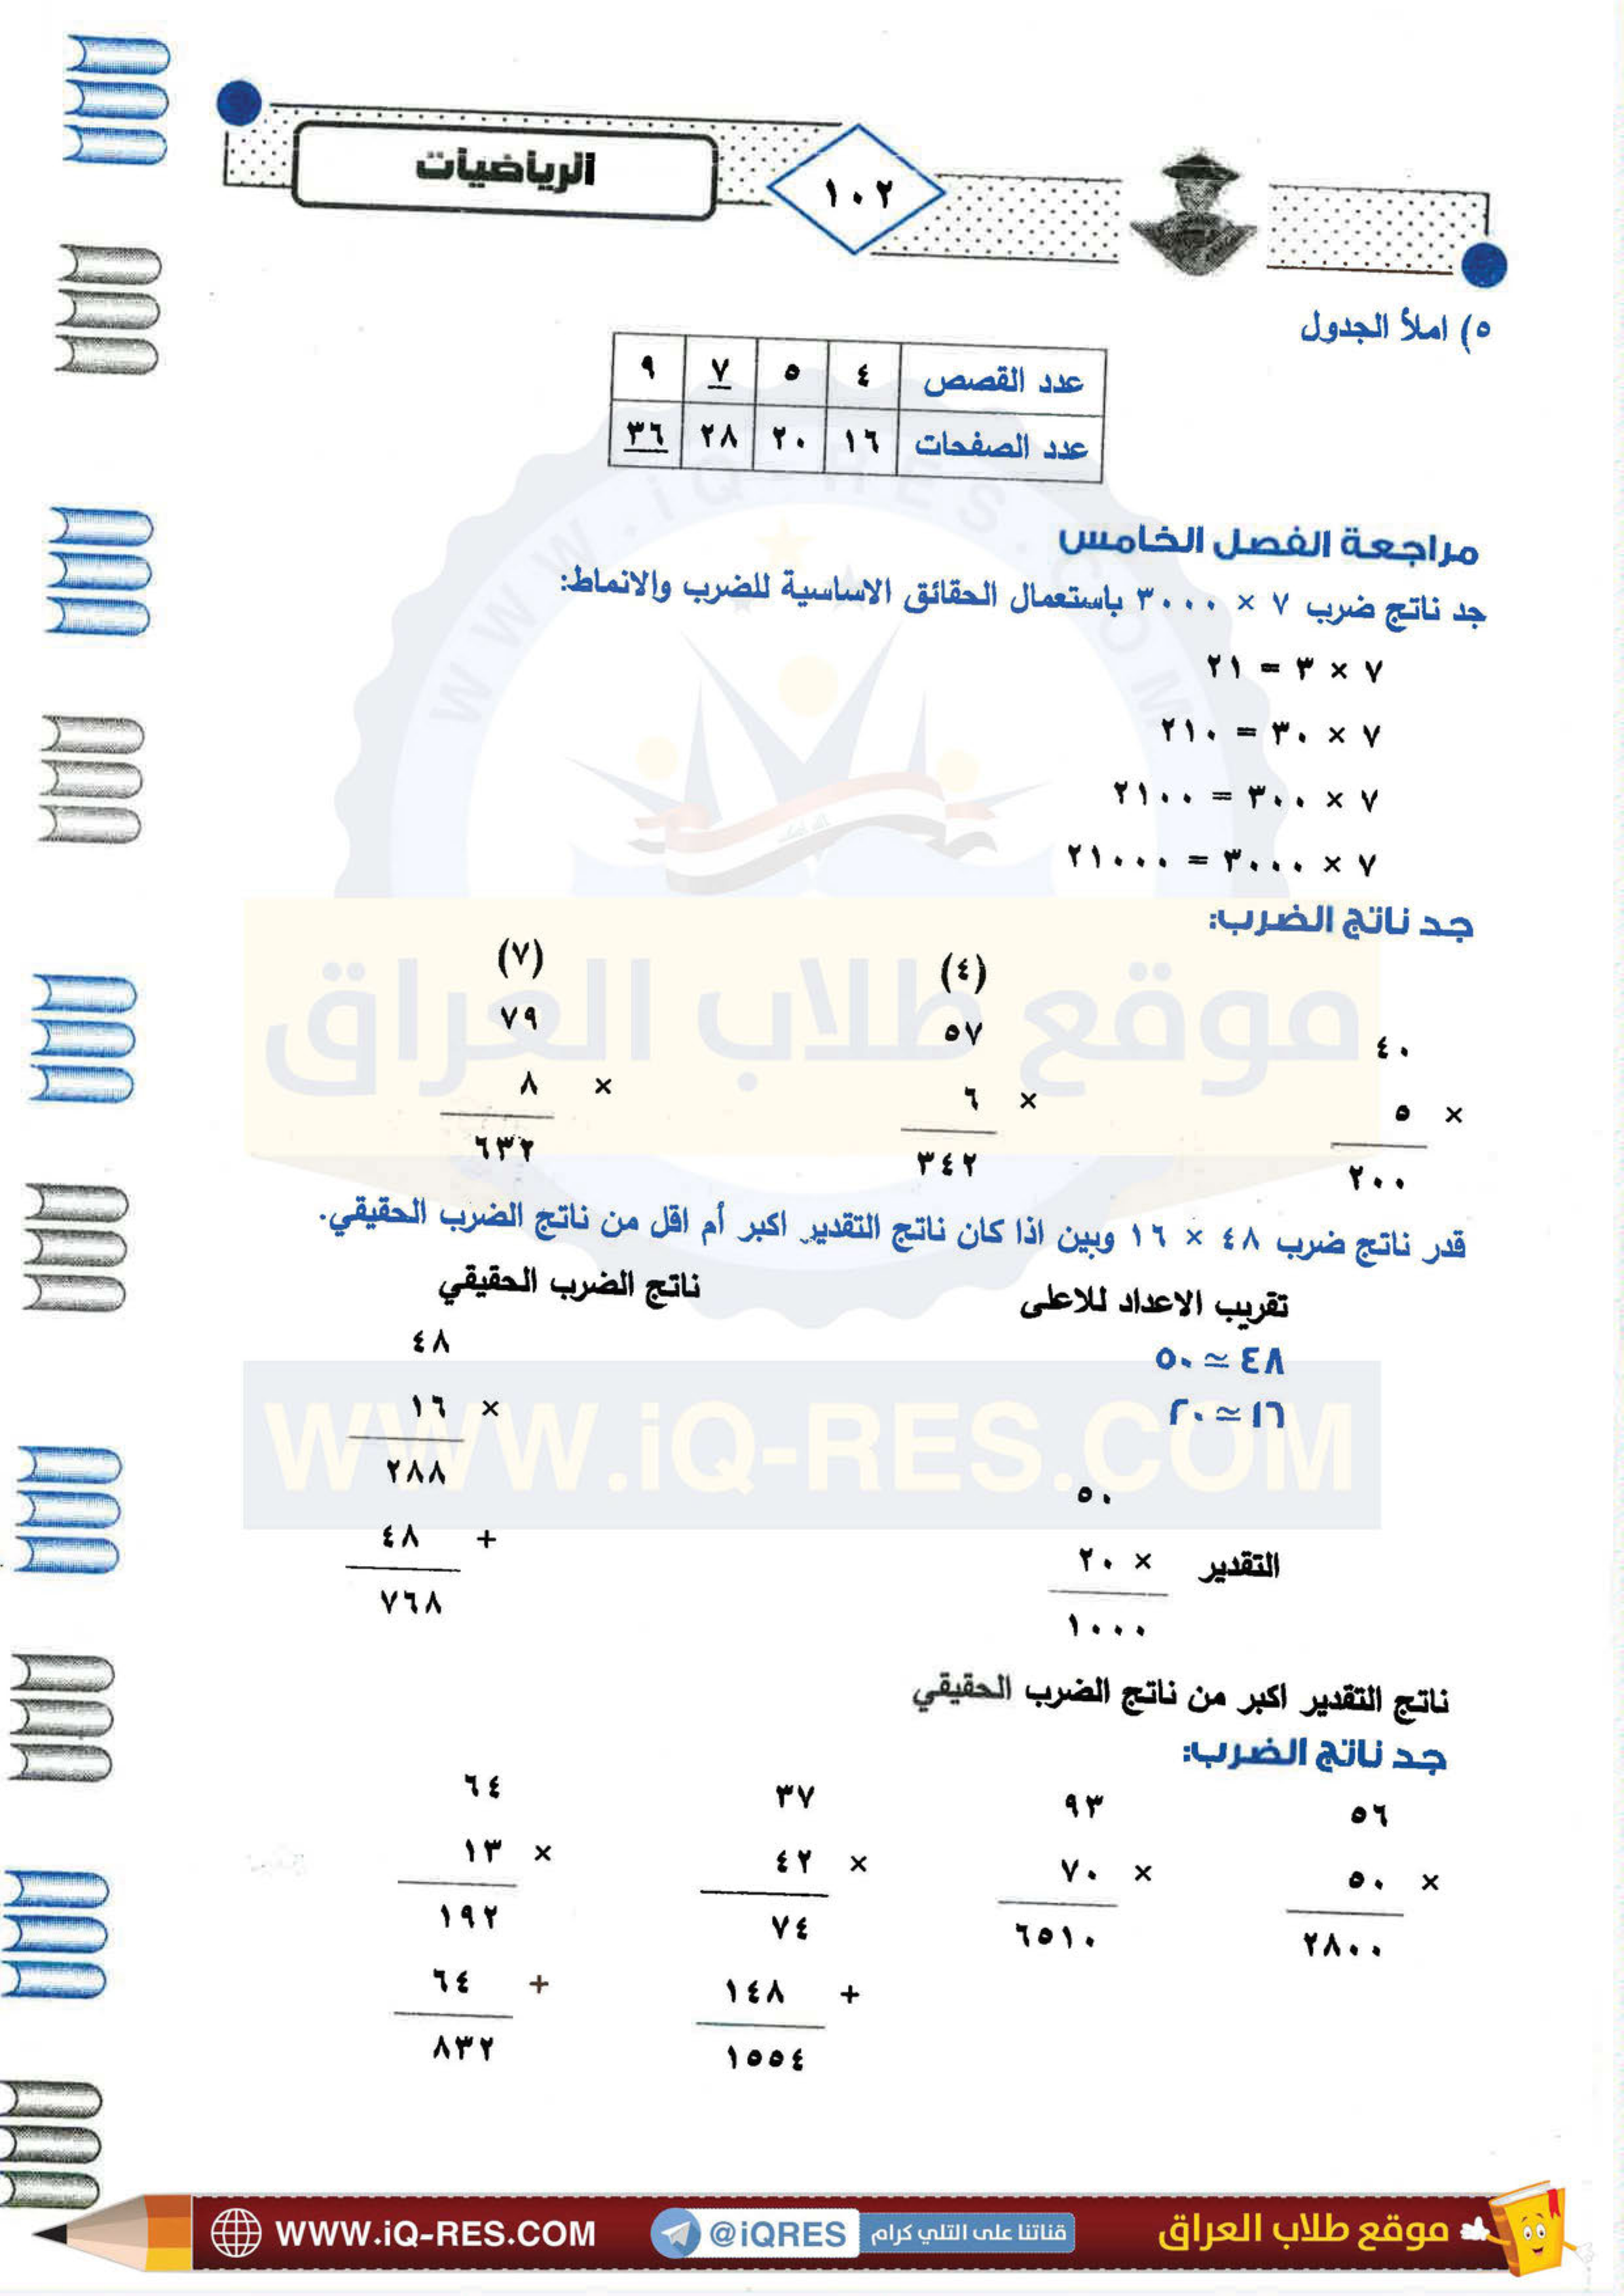 الرياضيات
١٠٢
٥) املأ الجدول
عدد القصص ٤ ٥ ٧ ٩
عدد الصفحات ١٦ ٢٠ ٢٨ ٣٦
مراجعة الفصل الخامس
جد ناتج ضرب ٧ × ٣٠٠٠ باستعمال الحقائق الاساسية للضرب والانماط:
٧ × ٣ = ٢١
٧ × ٣٠ = ٢١٠
٧ × ٣٠٠ = ٢١٠٠
٧ × ٣٠٠٠ = ٢١٠٠٠
جد ناتج الضرب:
(٤) (٧)
٤٠ ٥٧ ٧٩
× ٥ × ٦ × ٨
٢٠٠ ٣٤٢ ٦٣٢
قدر ناتج ضرب ٤٨ × ١٦ وبين اذا كان ناتج التقدير اكبر أم اقل من ناتج الضرب الحقيقي.
تقريب الاعداد للاعلى ناتج الضرب الحقيقي
٤٨ ≃ ٥٠ ٤٨
١٦ ≃ ٢٠ × ١٦
٢٨٨
٥٠ + ٤٨
التقدير × ٢٠ ٧٦٨
١٠٠٠
ناتج التقدير اكبر من ناتج الضرب الحقيقي
جد ناتج الضرب:
٥٦ ٩٣ ٣٧ ٦٤
× ٥٠ × ٧٠ × ٤٢ × ١٣
٢٨٠٠ ٦٥١٠ ٧٤ ١٩٢
+ ١٤٨ + ٦٤
١٥٥٤ ٨٣٢
WWW.iQ-RES.COM
موقع طلاب العراق
WWW.iQ-RES.COM
موقع طلاب العراق قناتنا على التلي كرام @iQRES WWW.iQ-RES.COM